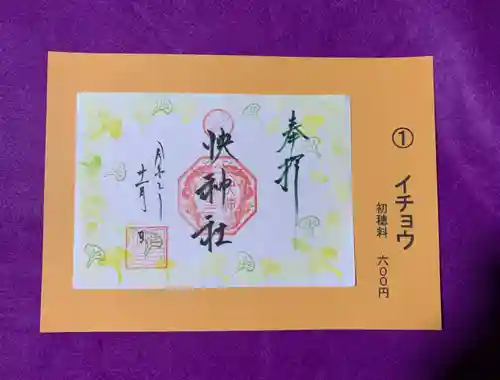 ①
イチョウ
初穂料 六〇〇円
奉拝
快神社
十一月 日